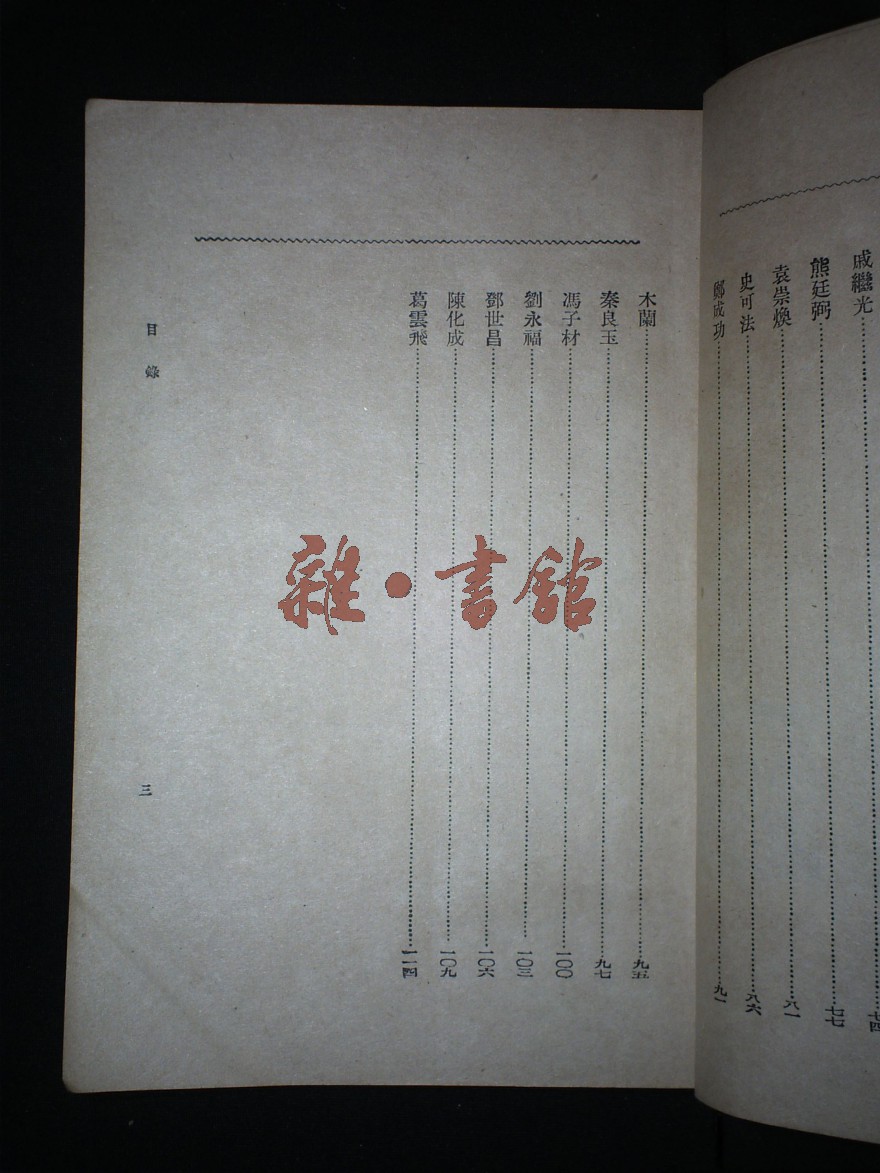 戚繼光……七四
熊廷弼……七七
袁崇煥……八一
史可法……八六
鄭成功……九一
木蘭……九五
秦良玉……九七
馮子材……一〇〇
劉永福……一〇三
鄧世昌……一〇六
陳化成……一〇九
葛雲飛……一一四
目錄
三
雜·書館